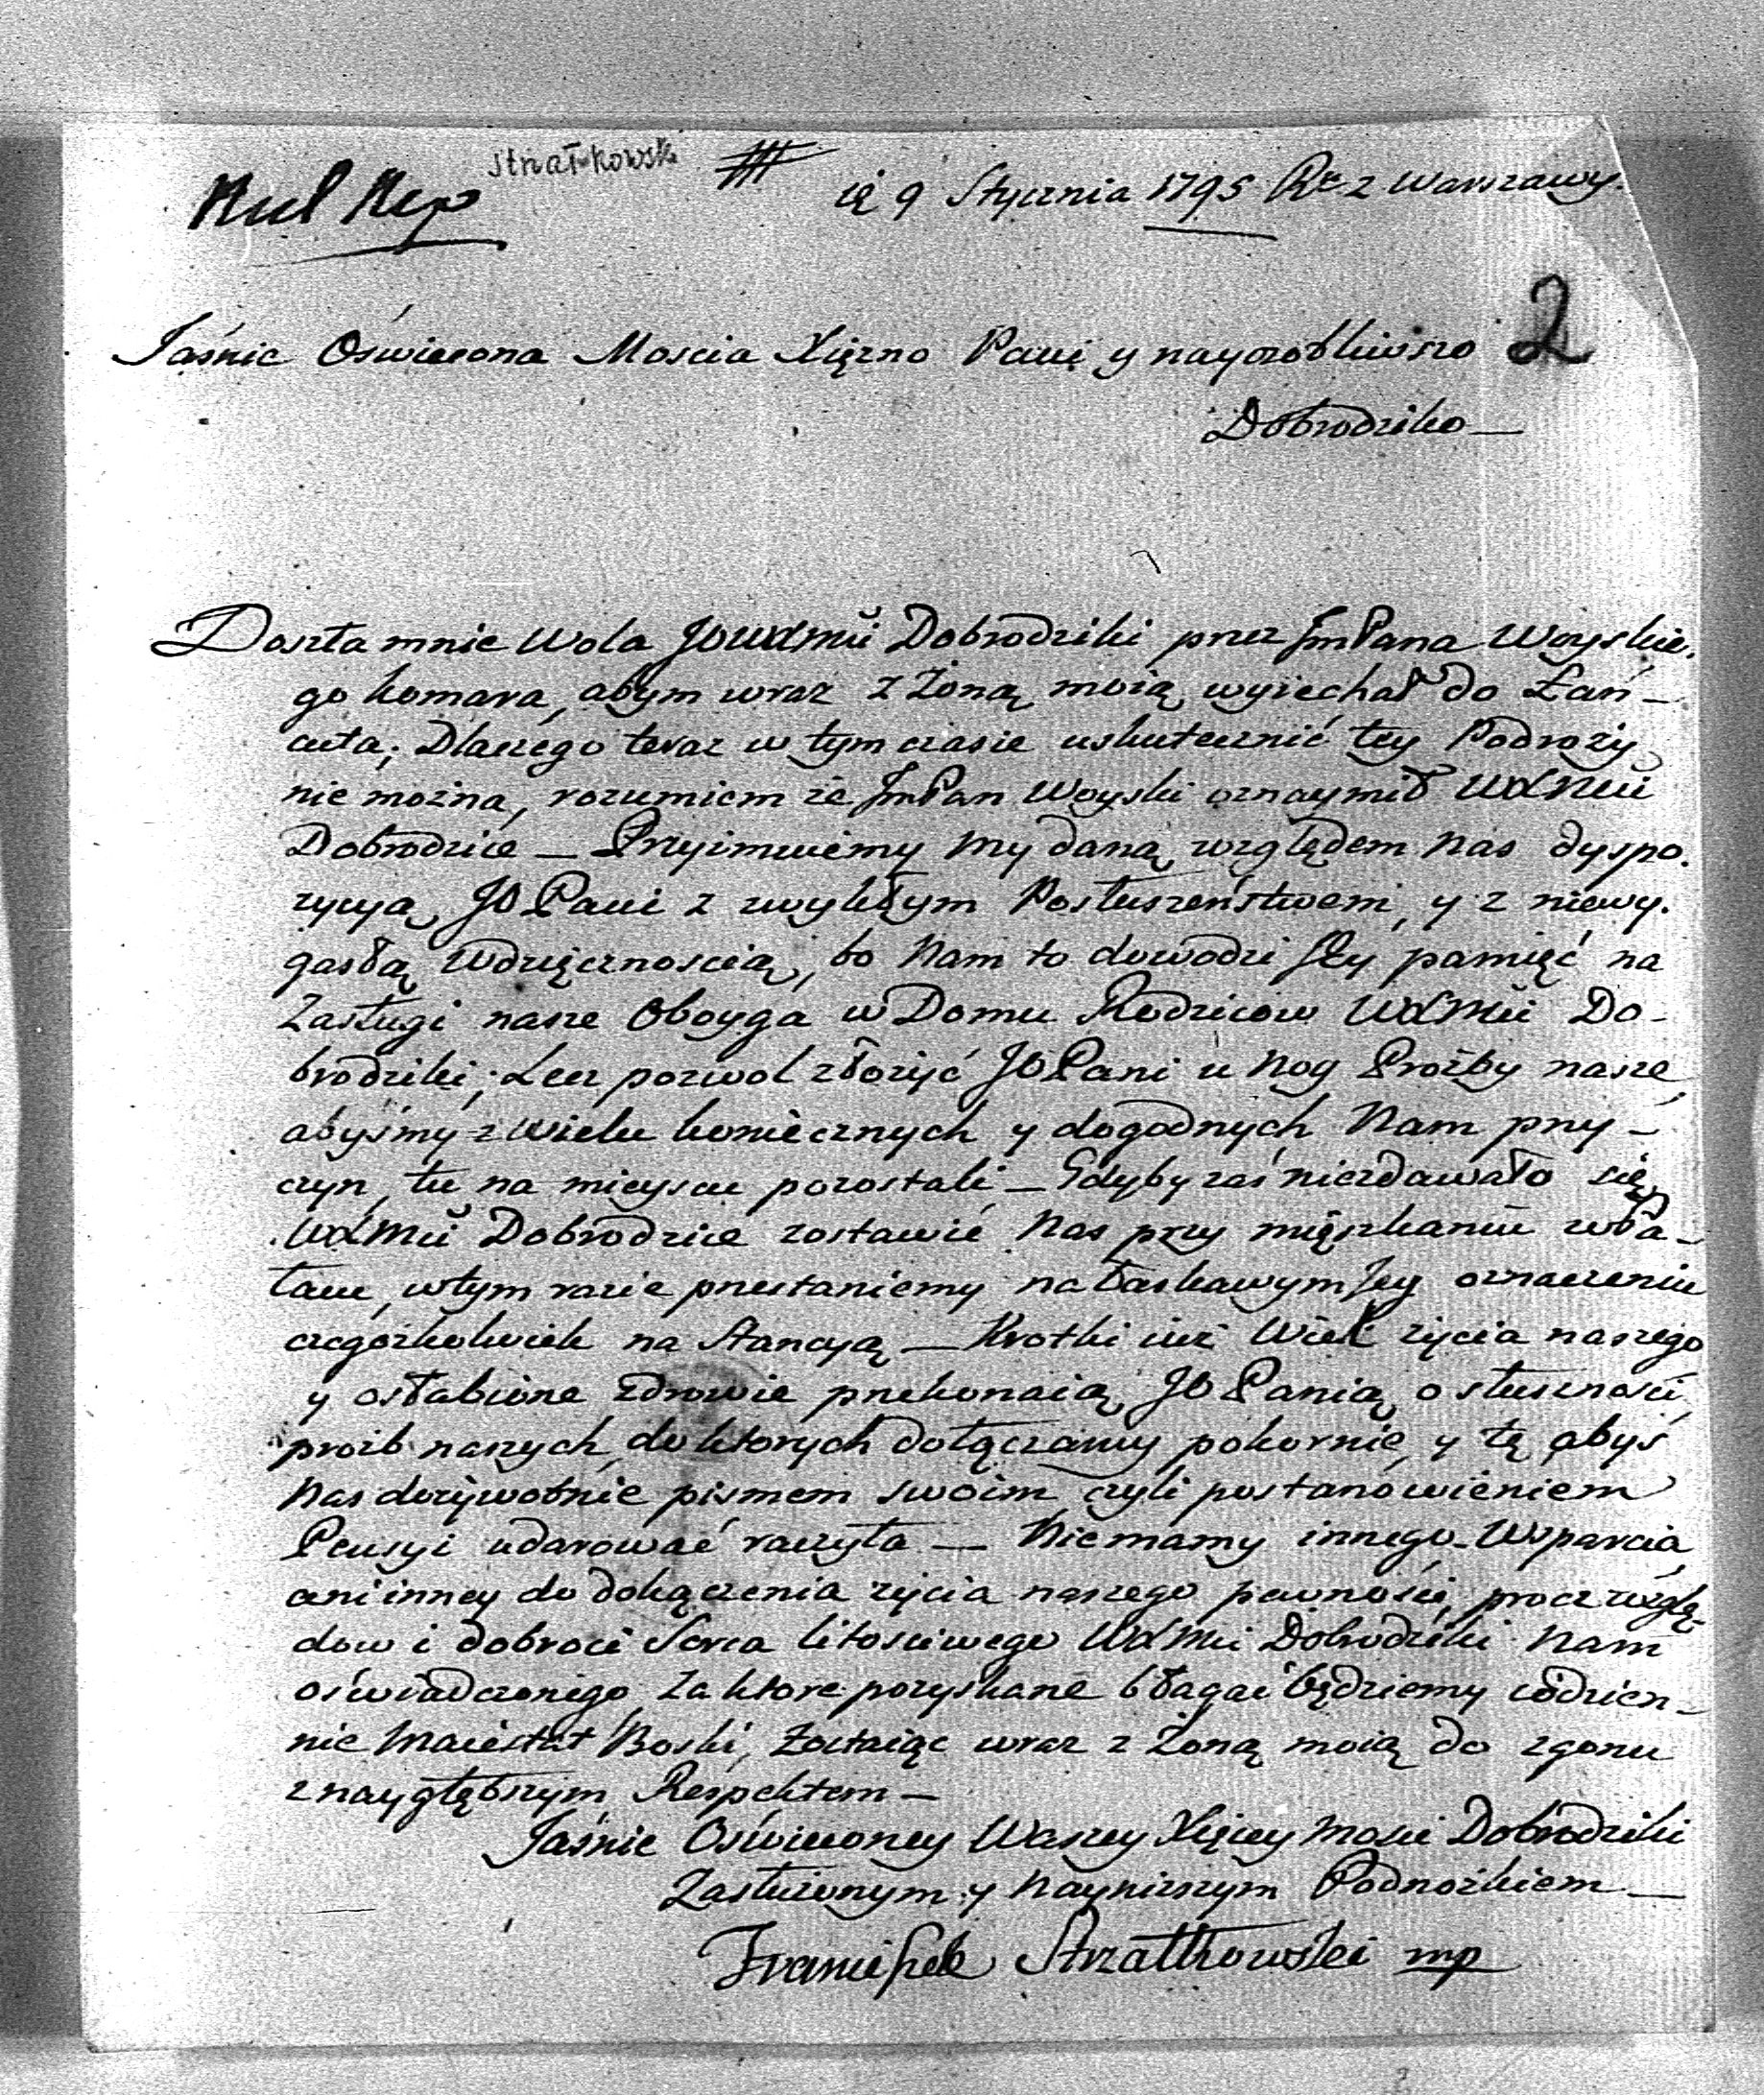 Strzałkowski
d. 9 Stycznia 1795 Rk z Warszawy.
2
Jaśnie Oświecona Moscia Xiężno Pani y nayosobliwsza
Dobrodziko —
Doszła mnie wola JOWXMci Dobrodziki przez JmPana Woyskie-
go Komara, abym wraz z Żoną moią wyiechał do Łań-
cuta; Dlaczego teraz w tym czasie uskutecznić tey Podroży
nie można, rozumiem że JmPan Woyski oznaymił WXMci
Dobrodzice — Przyimuiemy my daną względem nas dyspo-
zycyą JO Pani z zwykłym Posłuszeństwem, y z niewy-
gasłą wdzięcznoscią, bo Nam to dowodzi Jey pamięć na
Zasługi nasze Oboyga w Domu Rodzicow WXMci Do-
brodziki; Lecz pozwol złożyć JO Pani u Nog Proźby nasze
abyśmy z wielu koniecznych y dogodnych Nam przy-
czyn, tu na mieyscu pozostali — Gdyby zaś niezdawało się
WXMci Dobrodzice zostawić Nas przy mięszkaniu w Pa-
łacu, w tym razie przestaniemy na łaskawym Jey oznaczeniu
czegożkolwiek na Stancyą — Krotki iuż Wiek życia naszego
y osłabione zdrowie przekonaią JO Panią o słusznosci
proźb naszych, do ktorych dołączamy pokornie y tę abyś
Nas dożywotnie pismem swoim czyli postanowieniem
Pensyi udarować raczyła — Nie mamy innego Wsparcia
ani inney do dokączenia życia naszego pewności, procz wzglę-
dow i dobroci Serca litosciwego WXMci Dobrodziki Nam
oświadczonego, za ktore pozyskane błagać będziemy codzien-
nie Maiestat Boski, zostaiąc wraz z Żoną moią do zgonu
z naygłębszym Respektem —
Jaśnie Oświeconey Waszey Xięcey Mosci Dobrodziki
Zasłużonym y Nayniższym Podnożkiem —
Franciszek Strzałkowski mp